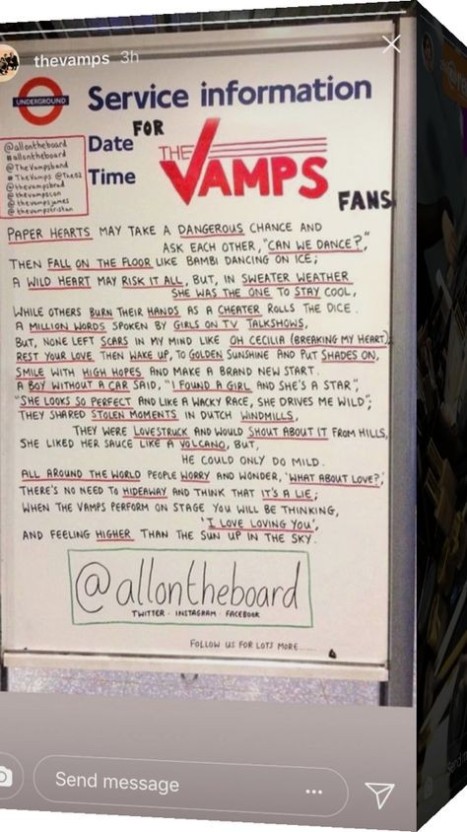 thevamps 3h
UNDERGROUND
Service information
Date
FOR
Time
THE
VAMPS
FANS
@allontheboard
#allontheboard
@TheVampsband
#TheVamps
@thevampsbrad
@thevampscon
@thevampsjames
@thevampstristan
PAPER HEARTS MAY TAKE A DANGEROUS CHANCE AND
ASK EACH OTHER, "CAN WE DANCE?",
THEN FALL ON THE FLOOR LIKE BAMBI DANCING ON ICE;
A WILD HEART MAY RISK IT ALL, BUT, IN SWEATER WEATHER
SHE WAS THE ONE TO STAY COOL,
WHILE OTHERS BURN THEIR HANDS AS A CHEATER ROLLS THE DICE.
A MILLION WORDS SPOKEN BY GIRLS ON TV TALKSHOWS,
BUT, NONE LEFT SCARS IN MY MIND LIKE OH CECILIA (BREAKING MY HEART)
REST YOUR LOVE THEN WAKE UP, TO GOLDEN SUNSHINE AND PUT SHADES ON,
SMILE WITH HIGH HOPES AND MAKE A BRAND NEW START.
A BOY WITHOUT A CAR SAID, "I FOUND A GIRL AND SHE'S A STAR",
"SHE LOOKS SO PERFECT AND LIKE A WACKY RACE, SHE DRIVES ME WILD";
THEY SHARED STOLEN MOMENTS IN DUTCH WINDMILLS,
THEY WERE LOVESTRUCK AND WOULD SHOUT ABOUT IT FROM HILLS,
SHE LIKED HER SAUCE LIKE A VOLCANO, BUT,
HE COULD ONLY DO MILD.
ALL AROUND THE WORLD PEOPLE WORRY AND WONDER, 'WHAT ABOUT LOVE?',
THERE'S NO NEED TO HIDEAWAY AND THINK THAT IT'S A LIE;
WHEN THE VAMPS PERFORM ON STAGE YOU WILL BE THINKING,
'I LOVE LOVING YOU',
AND FEELING HIGHER THAN THE SUN UP IN THE SKY.
@allontheboard
TWITTER · INSTAGRAM · FACEBOOK
FOLLOW US FOR LOTS MORE
Send message